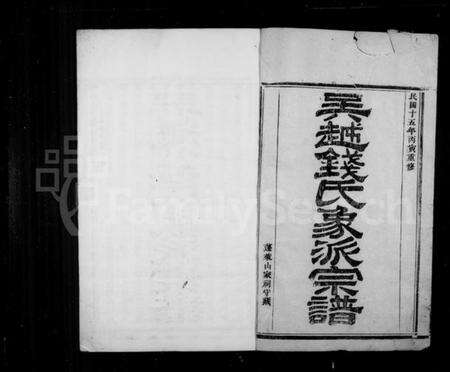 民國十五年丙寅重修
吳越錢氏象派宗譜
蓬萊山家祠守藏
FamilySearch